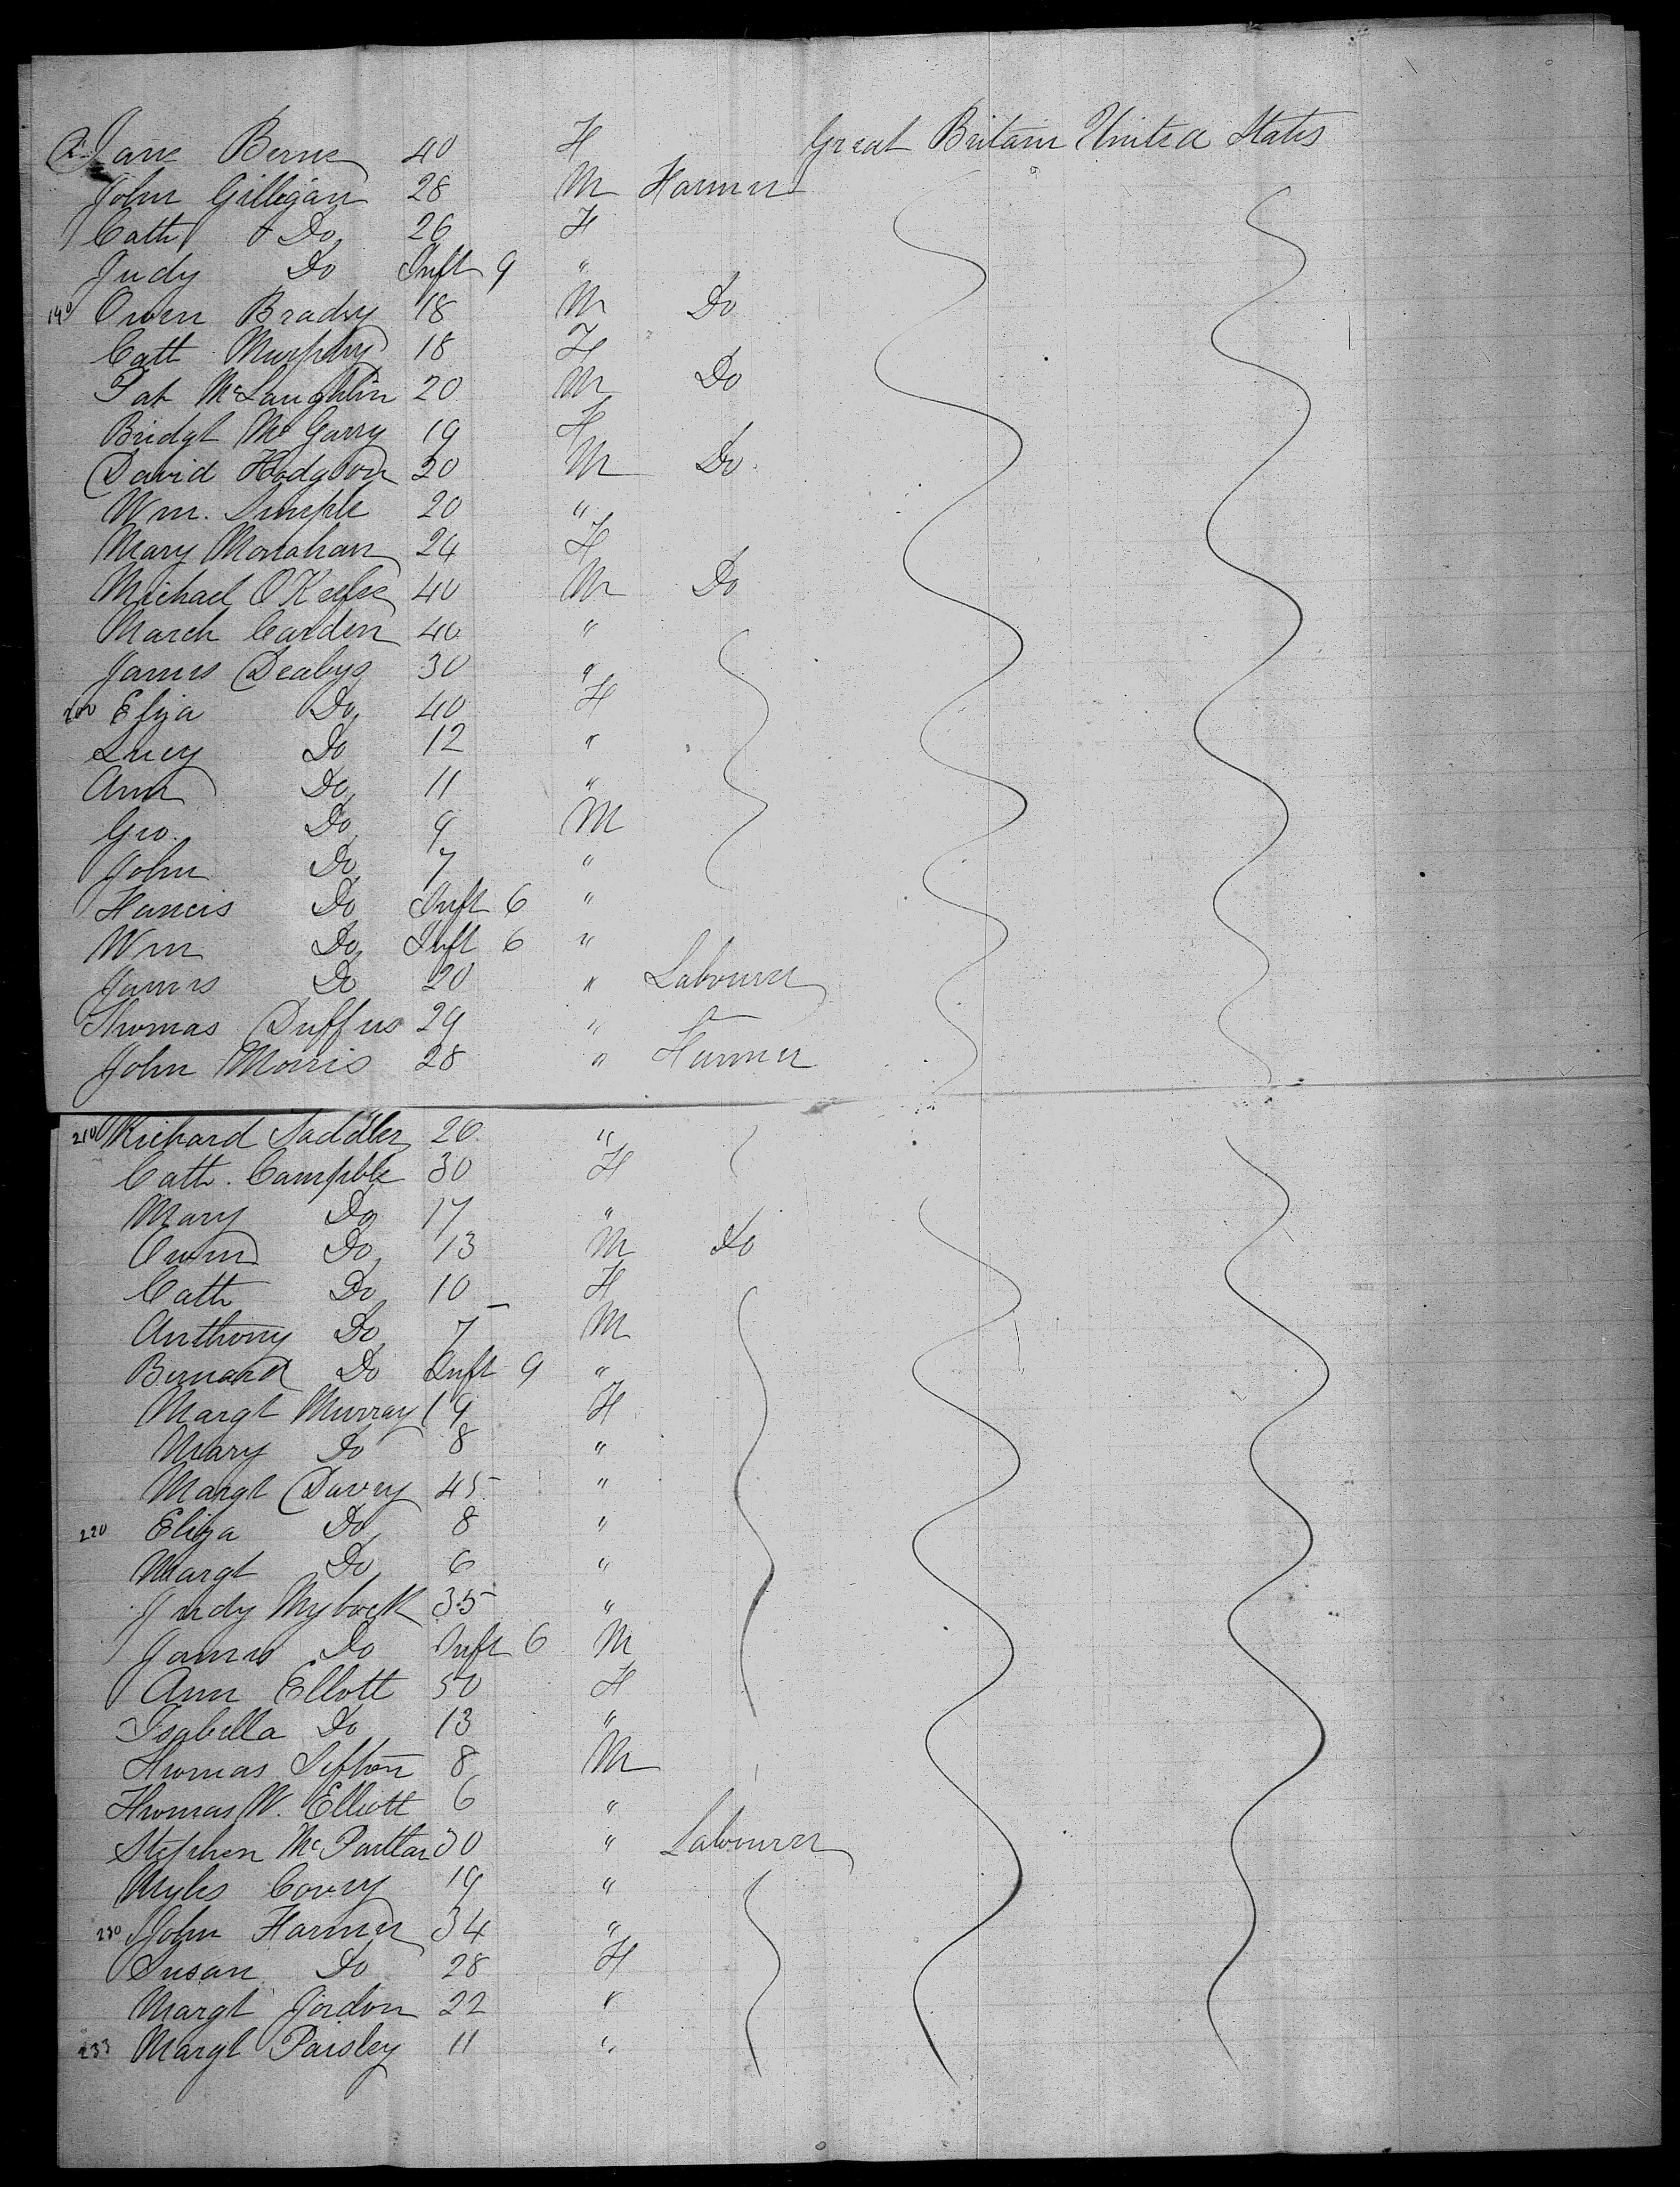 Jane Berne 40 F Great Britain United States
John Gilligan 28 M Farmer
Cath Do 26 F
Judy Do Inft 9 "
190 Owen Brady 18 M Do
Cath Murphy 18 F
Pat McLaughlin 20 M Do
Bridgt McGarry 19 F
David Hodgson 20 M Do
Wm. Simple 20 "
Mary Monahan 24 F
Michael O'Keefe 40 M Do
March Carden 40 "
James 30 "
200 Eliza Do 40 F
Lucy Do 12 "
Ann Do 11 "
Geo. Do 9 M
John Do 7 "
Francis Do Inft 6 "
Wm Do Inft 6 "
James Do 20 " Labourer
Thomas Duffus 29 "
John Morris 28 " Farmer
210 Richard Saddler 26 "
Cath. Campble 30 F
Mary Do 17 "
Owen Do 13 M Do
Cath Do 10 F
Anthony Do 7 M
Bernard Do Inft 9 "
Margt Murray 19 F
Mary Do 8 "
Margt Davey 45 "
220 Eliza Do 8 "
Margt Do 6 "
Judy 35 "
James Do Inft 6 M
Ann Ellott 50 F
Isabella Do 13 "
Thomas Sifton 8 M
Thomas W. Elliott 6 "
Stephen McPartlan 30 " Labourer
Myles Covey 19 "
230 John Farmer 34 "
Susan Do 28 F
Margt Jordon 22 "
233 Margt Paisley 11 "